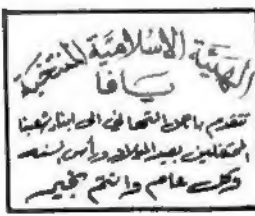 الهيئة الاسلامية المنتخبة
يافا
تتقدم باحلى التهاني الى ابناء شعبنا
المحتفلين بعيد الميلاد ورأس السنة
وكل عام وانتم بخير